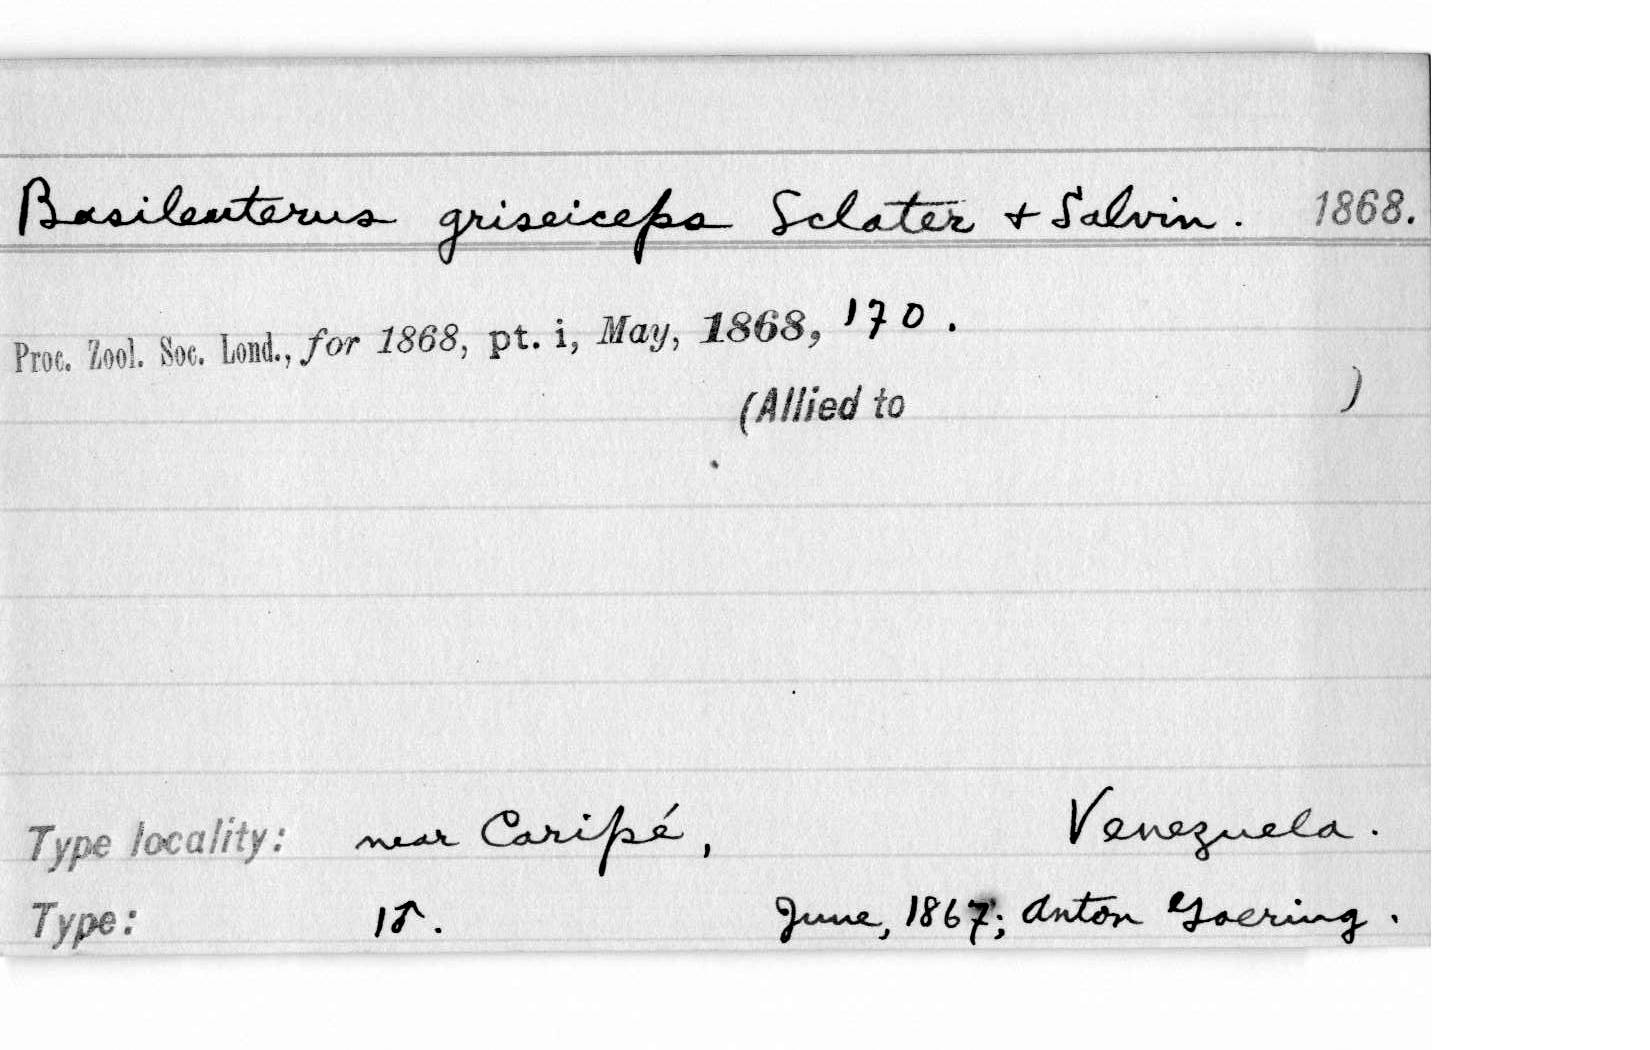 Basileuterus griseiceps Sclater + Salvin. 1868.
Proc. Zool. Soc. Lond., for 1868, pt. i, May, 1868, 170.
(Allied to )
Type locality: near Caripé, Venezuela.
Type: 1♂. June, 1867; Anton Goering.